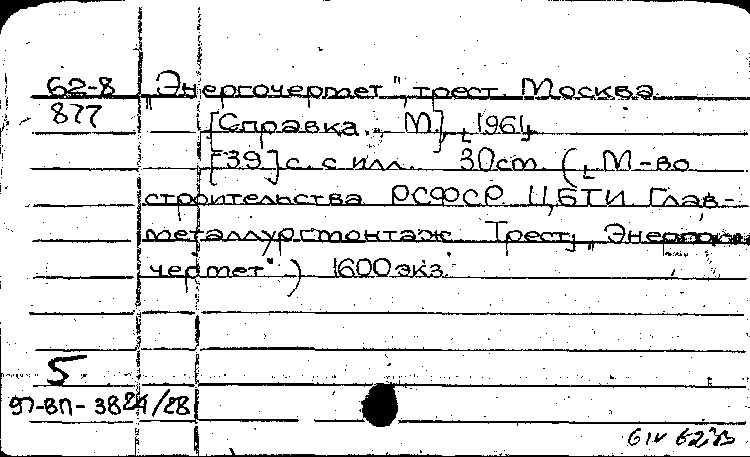 62-8 „Энергочермет", трест. Москва.
877
[Справка. М], [1961]
[39] с. с илл. 30см. ([М-во
строительства РСФСР ЦБТИ. Глав-
металлургмонтаж. Трест „Энерго-
чермет") 1600 экз.
5
97-ВП-3824/28